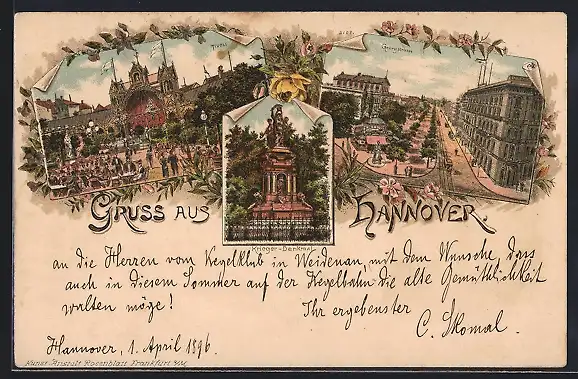 TIVOLI
Georgstrasse
GRUSS AUS HANNOVER.
Krieger-Denkmal
an die Herren vom Kegelklub in Weidenau, mit dem Wunsche, dass
auch in diesem Sommer auf der Kegelbahn die alte Gemüthlichkeit
walten möge!
Ihr ergebenster
C. Skomal.
Hannover, 1. April 1896.
Kunst-Anstalt Rosenblatt Frankfurt a/M.